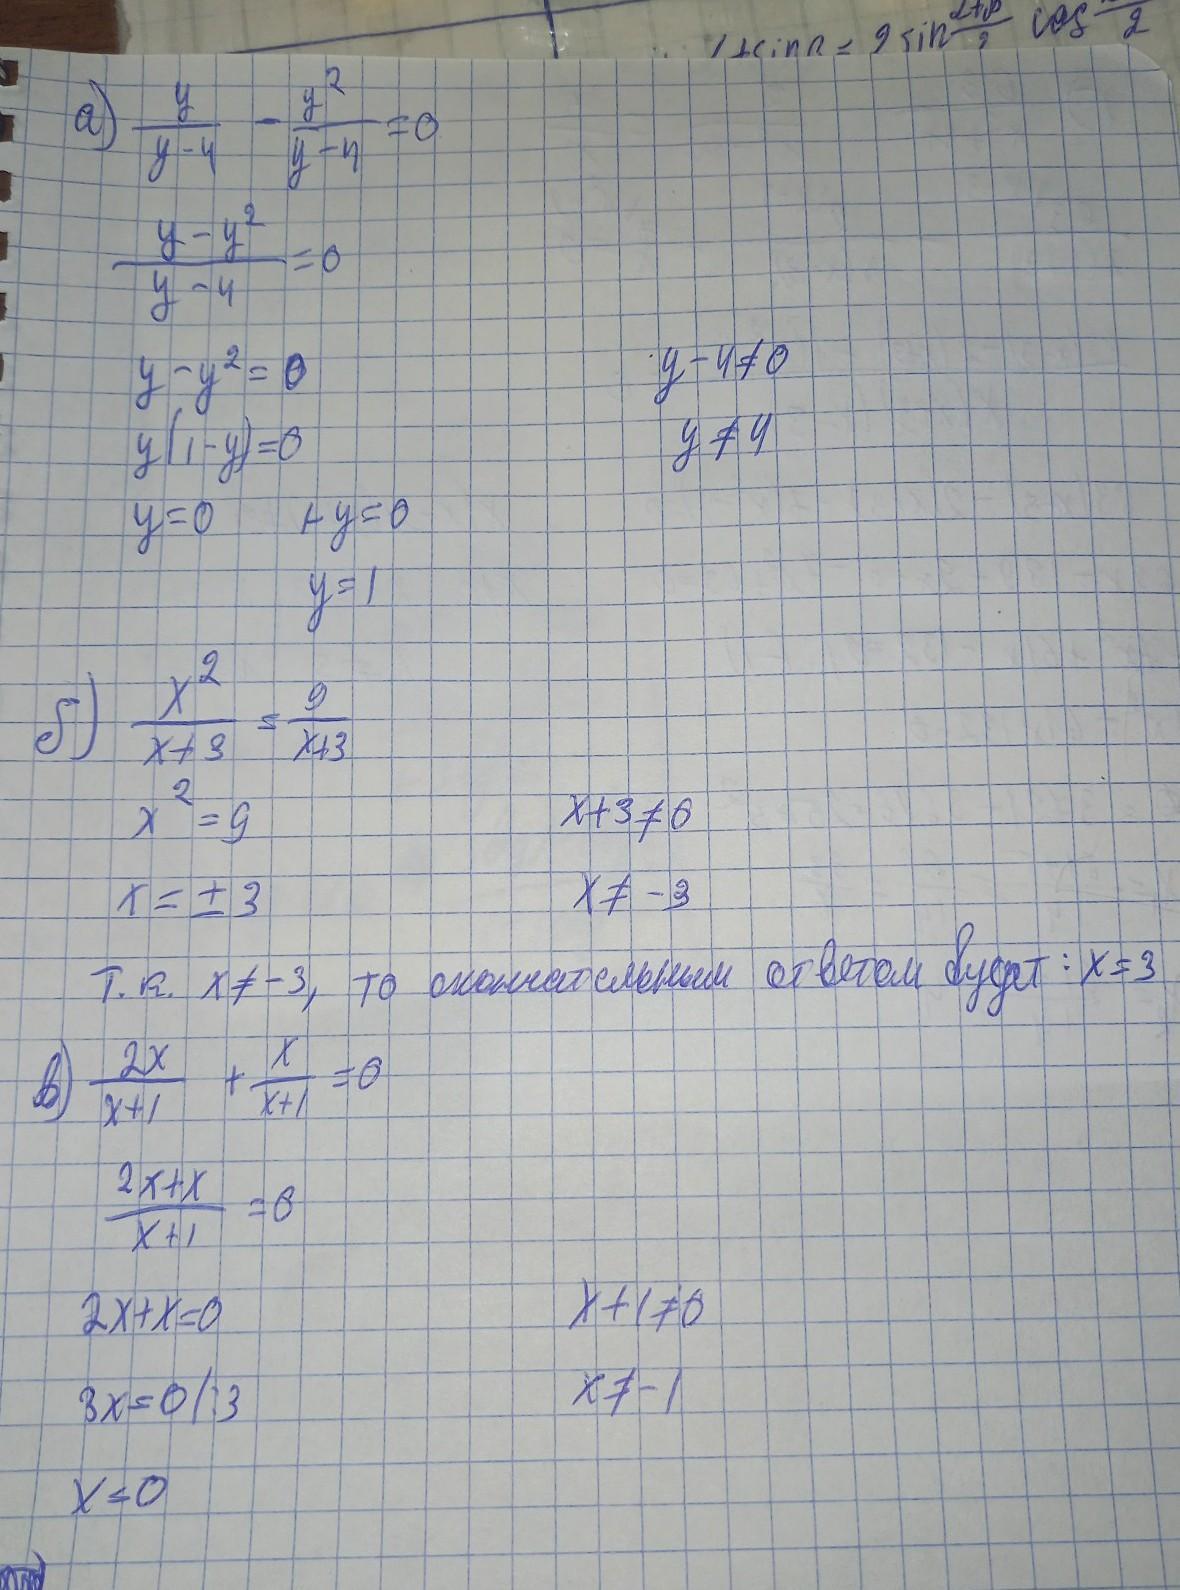 1+sin α = 2 sin cos
а) y/(y-4) - y²/(y-4) = 0
(y-y²)/(y-4) = 0
y-y²=0 y-4≠0
y(1-y)=0 y≠4
y=0 1-y=0
y=1
б) x²/(x+3) = 9/(x+3)
x²=9 x+3≠0
x=±3 x≠-3
Т.к. x≠-3, то окончательным ответом будет: x=3
в) 2x/(x+1) + x/(x+1) = 0
(2x+x)/(x+1) = 0
2x+x=0 x+1≠0
3x=0/:3 x≠-1
x=0